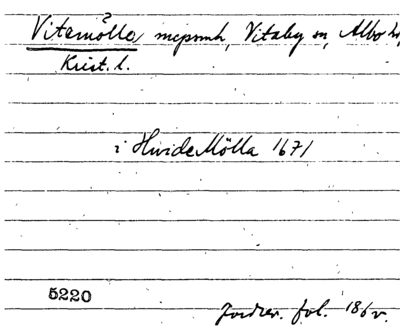 Vitemölla mcpsmh, Vitaby sn, Albo hd,
Krist. l.
i HvideMölla 1671
5220
Jordrev. fol. 186v.